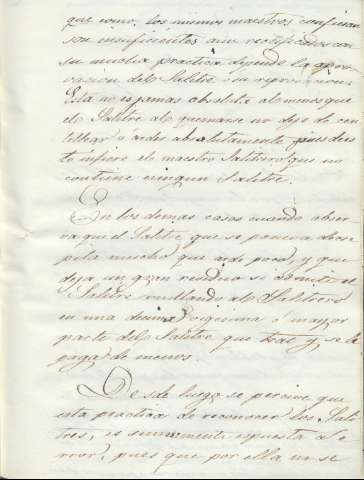 que como, los mismos maestros confiesan
son insuficientes aun rectificados con
su mucha practica dejando la apro-
vacion del Salitre su reprovacion.
Esta no es jamas absoluta al menos que
el Salitre al quemarse no deje de cen-
tellear ó arder absolutamente pues de es-
to infiere el maestro Salitrero que no
contiene ningun Salitre.
En los demas casos cuando obser-
va que el Salitre que se prueva decre-
pita mucho que arde poco, y que
deja un gran residuo se admite el
Salitre multando al Salitrero
en una decima Vigesima ó mayor
parte del Salitre que trae y se le
paga de menos.
Desde luego se percive que
esta practica de reconocer los Sali-
tres, es sumamente espuesta a e-
rror, pues que por ella no se